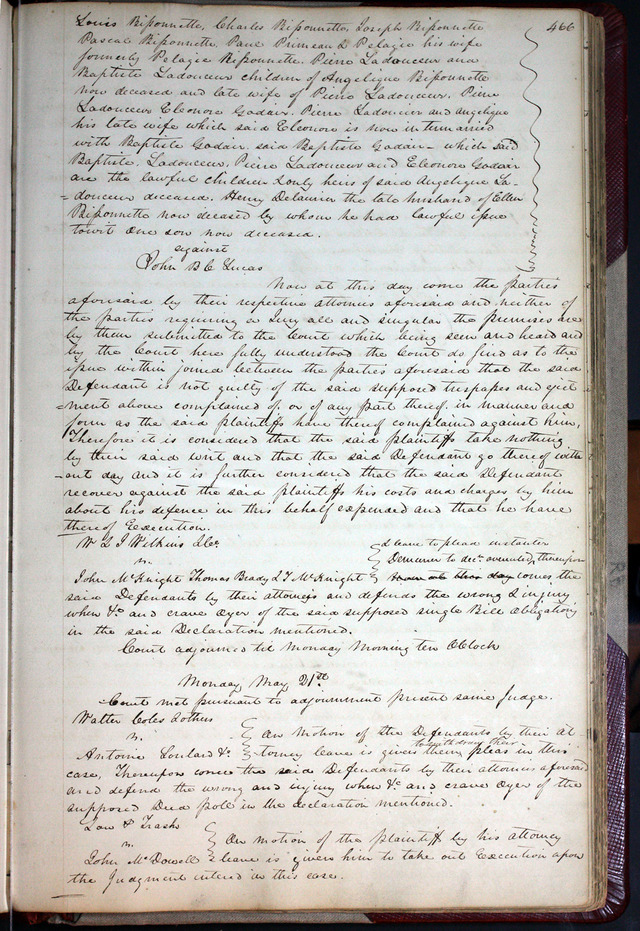 466
Louis Bissonnette, Charles Bissonnette, Joseph Bissonnette
Pascal Bissonnette, Paul Primeau & Pelagie his wife
formerly Pelagie Bissonnette. Pierre Ladouceur and
Baptiste Ladouceur children of Angelique Bissonnette
now deceased and late wife of Pierre Ladouceur. Pierre
Ladouceur Eleonore Godair. Pierre Ladouceur and Angelique
his late wife which said Eleonore is now intermarried
with Baptiste Godair. said Baptiste Godair - which said
Baptiste. Ladouceur, Pierre Ladouceur and Eleonore Godair
are the lawful children & only heirs of said Angelique La-
=douceur deceased. Henry Delaurier the late husband of Ellen
Bissonnette now deceased by whom he had lawful issue
towit One son now deceased.
against
John B C Lucas
Now at this day come the parties
aforesaid by their respective attornies aforesaid and neither of
the parties requiring a Jury all and singular the premises are
by them submitted to the Court which being seen and heard and
by the Court here fully understood the Court do find as to the
issue within joined between the parties aforesaid that the said
Defendant is not guilty of the said supposed trespasses and eject
=ment above complained of, or of any part thereof. in manner and
form as the said plaintiffs have thereof complained against him,
Therefore it is considered that the said plaintiffs take nothing
by their said writ and that the said Defendant go thereof with
-out day and it is further considered that the said Defendant
recover against the said plaintiffs his costs and charges by him
about his defence in this behalf expended and that he have
thereof Execution.
W & J Wilkins & Co.
vs.
Leave to plead instanter
Demurrer to decn. overruled, thereupon
John McKnight Thomas Brady & T McKnight comes the
said Defendants by their attorneys and defends the wrong & injury
when &c and crave Oyer of the said supposed single Bill Obligatory
in the said Declaration mentioned.
Court adjourned til Monday Morning ten OClock
Monday May 21st
Court met pursuant to adjournment present same Judge.
Walter Coles & others
vs.
On Motion of the Defendants by their at-
Antoine Soulard &c torney leave is given them to withdraw their pleas in this
case, Thereupon come the said Defendants by their attornies aforesaid
and defend the wrong and injury when &c and crave Oyer of the
supposed Deed pole in the declaration mentioned.
Low & Trash
vs.
On motion of the plaintiff by his attorney
John McDowell leave is given him to take out Execution upon
the Judgment entered in this case.